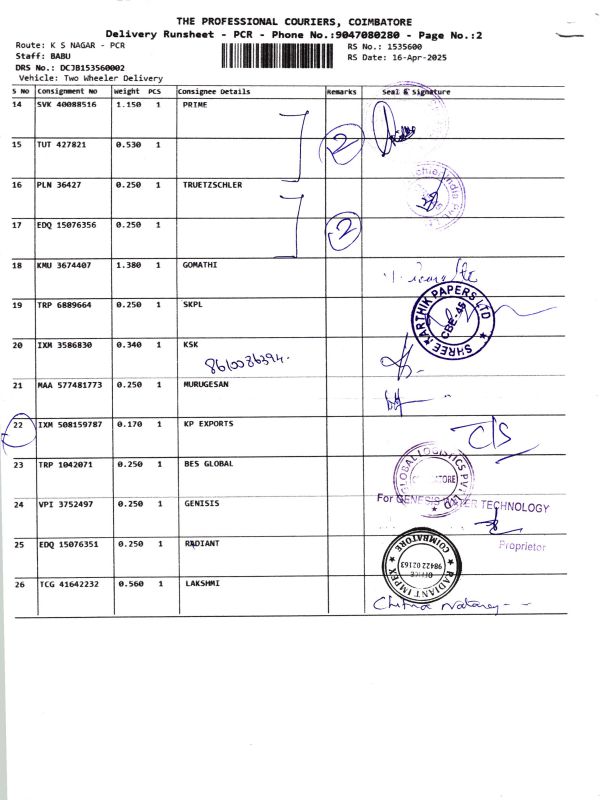 THE PROFESSIONAL COURIERS, COIMBATORE
Delivery Runsheet - PCR - Phone No.:9047080280 - Page No.:2
Route: K S NAGAR - PCR
RS No.: 1535600
Staff: BABU
RS Date: 16-Apr-2025
DRS No.: DCJB153560002
Vehicle: Two Wheeler Delivery
S No Consignment No Weight PCS Consignee Details Remarks Seal & Signature
14 SVK 40088516 1.150 1 PRIME
2
15 TUT 427821 0.530 1
16 PLN 36427 0.250 1 TRUETZSCHLER
2
17 EDQ 15076356 0.250 1
18 KMU 3674407 1.380 1 GOMATHI
19 TRP 6889664 0.250 1 SKPL
SHREE KARTHIK PAPERS LTD
CBE-45
20 IXM 3586830 0.340 1 KSK
8610086394.
21 MAA 577481773 0.250 1 MURUGESAN
22 IXM 508159787 0.170 1 KP EXPORTS
C/S
23 TRP 1042071 0.250 1 BES GLOBAL
GLOBAL LOGISTICS PVT. LTD
24 VPI 3752497 0.250 1 GENISIS
For GENESIS WATER TECHNOLOGY
Proprietor
25 EDQ 15076351 0.250 1 RADIANT
RADIANT IMPEX
COIMBATORE
OFFICE
98422 02163
26 TCG 41642232 0.560 1 LAKSHMI
Chitra